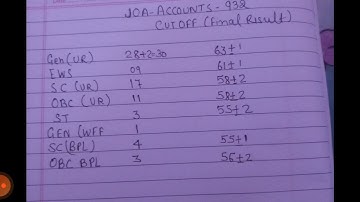 JOA-ACCOUNTS-932
CUTOFF (Final Result)
Gen (UR) 28+2=30 63±1
EWS 09 61±1
SC (UR) 17 58±2
OBC (UR) 11 58±2
ST 3 55±2
GEN (WFF 1
SC (BPL) 4 55±1
OBC BPL 3 56±2